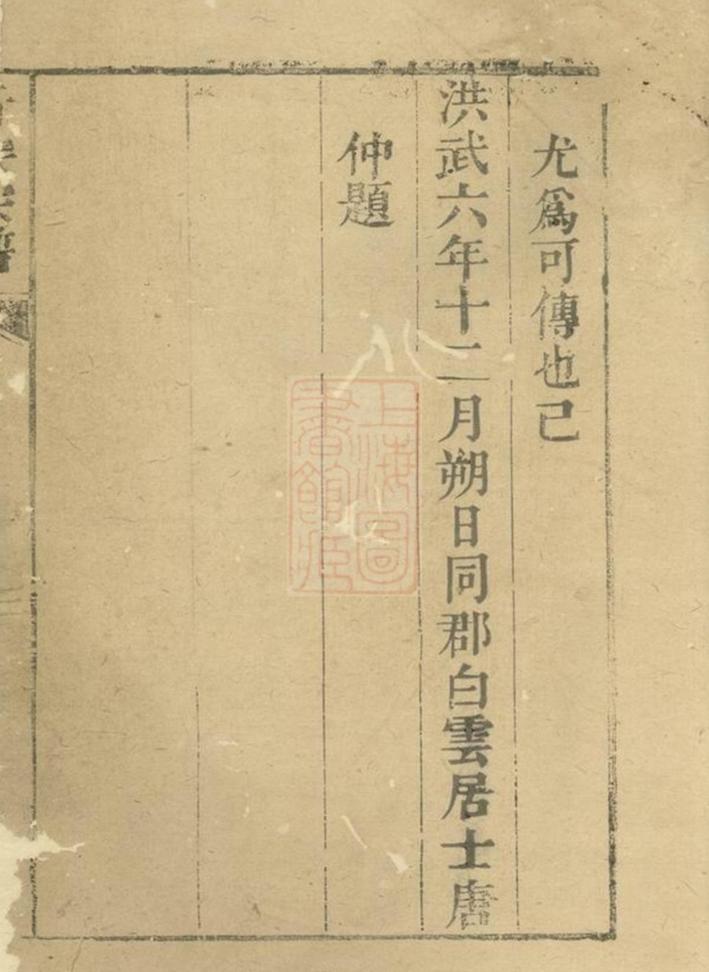 尤爲可傳也已
洪武六年十二月朔日同郡白雲居士唐
仲題
上海圖
書館庄